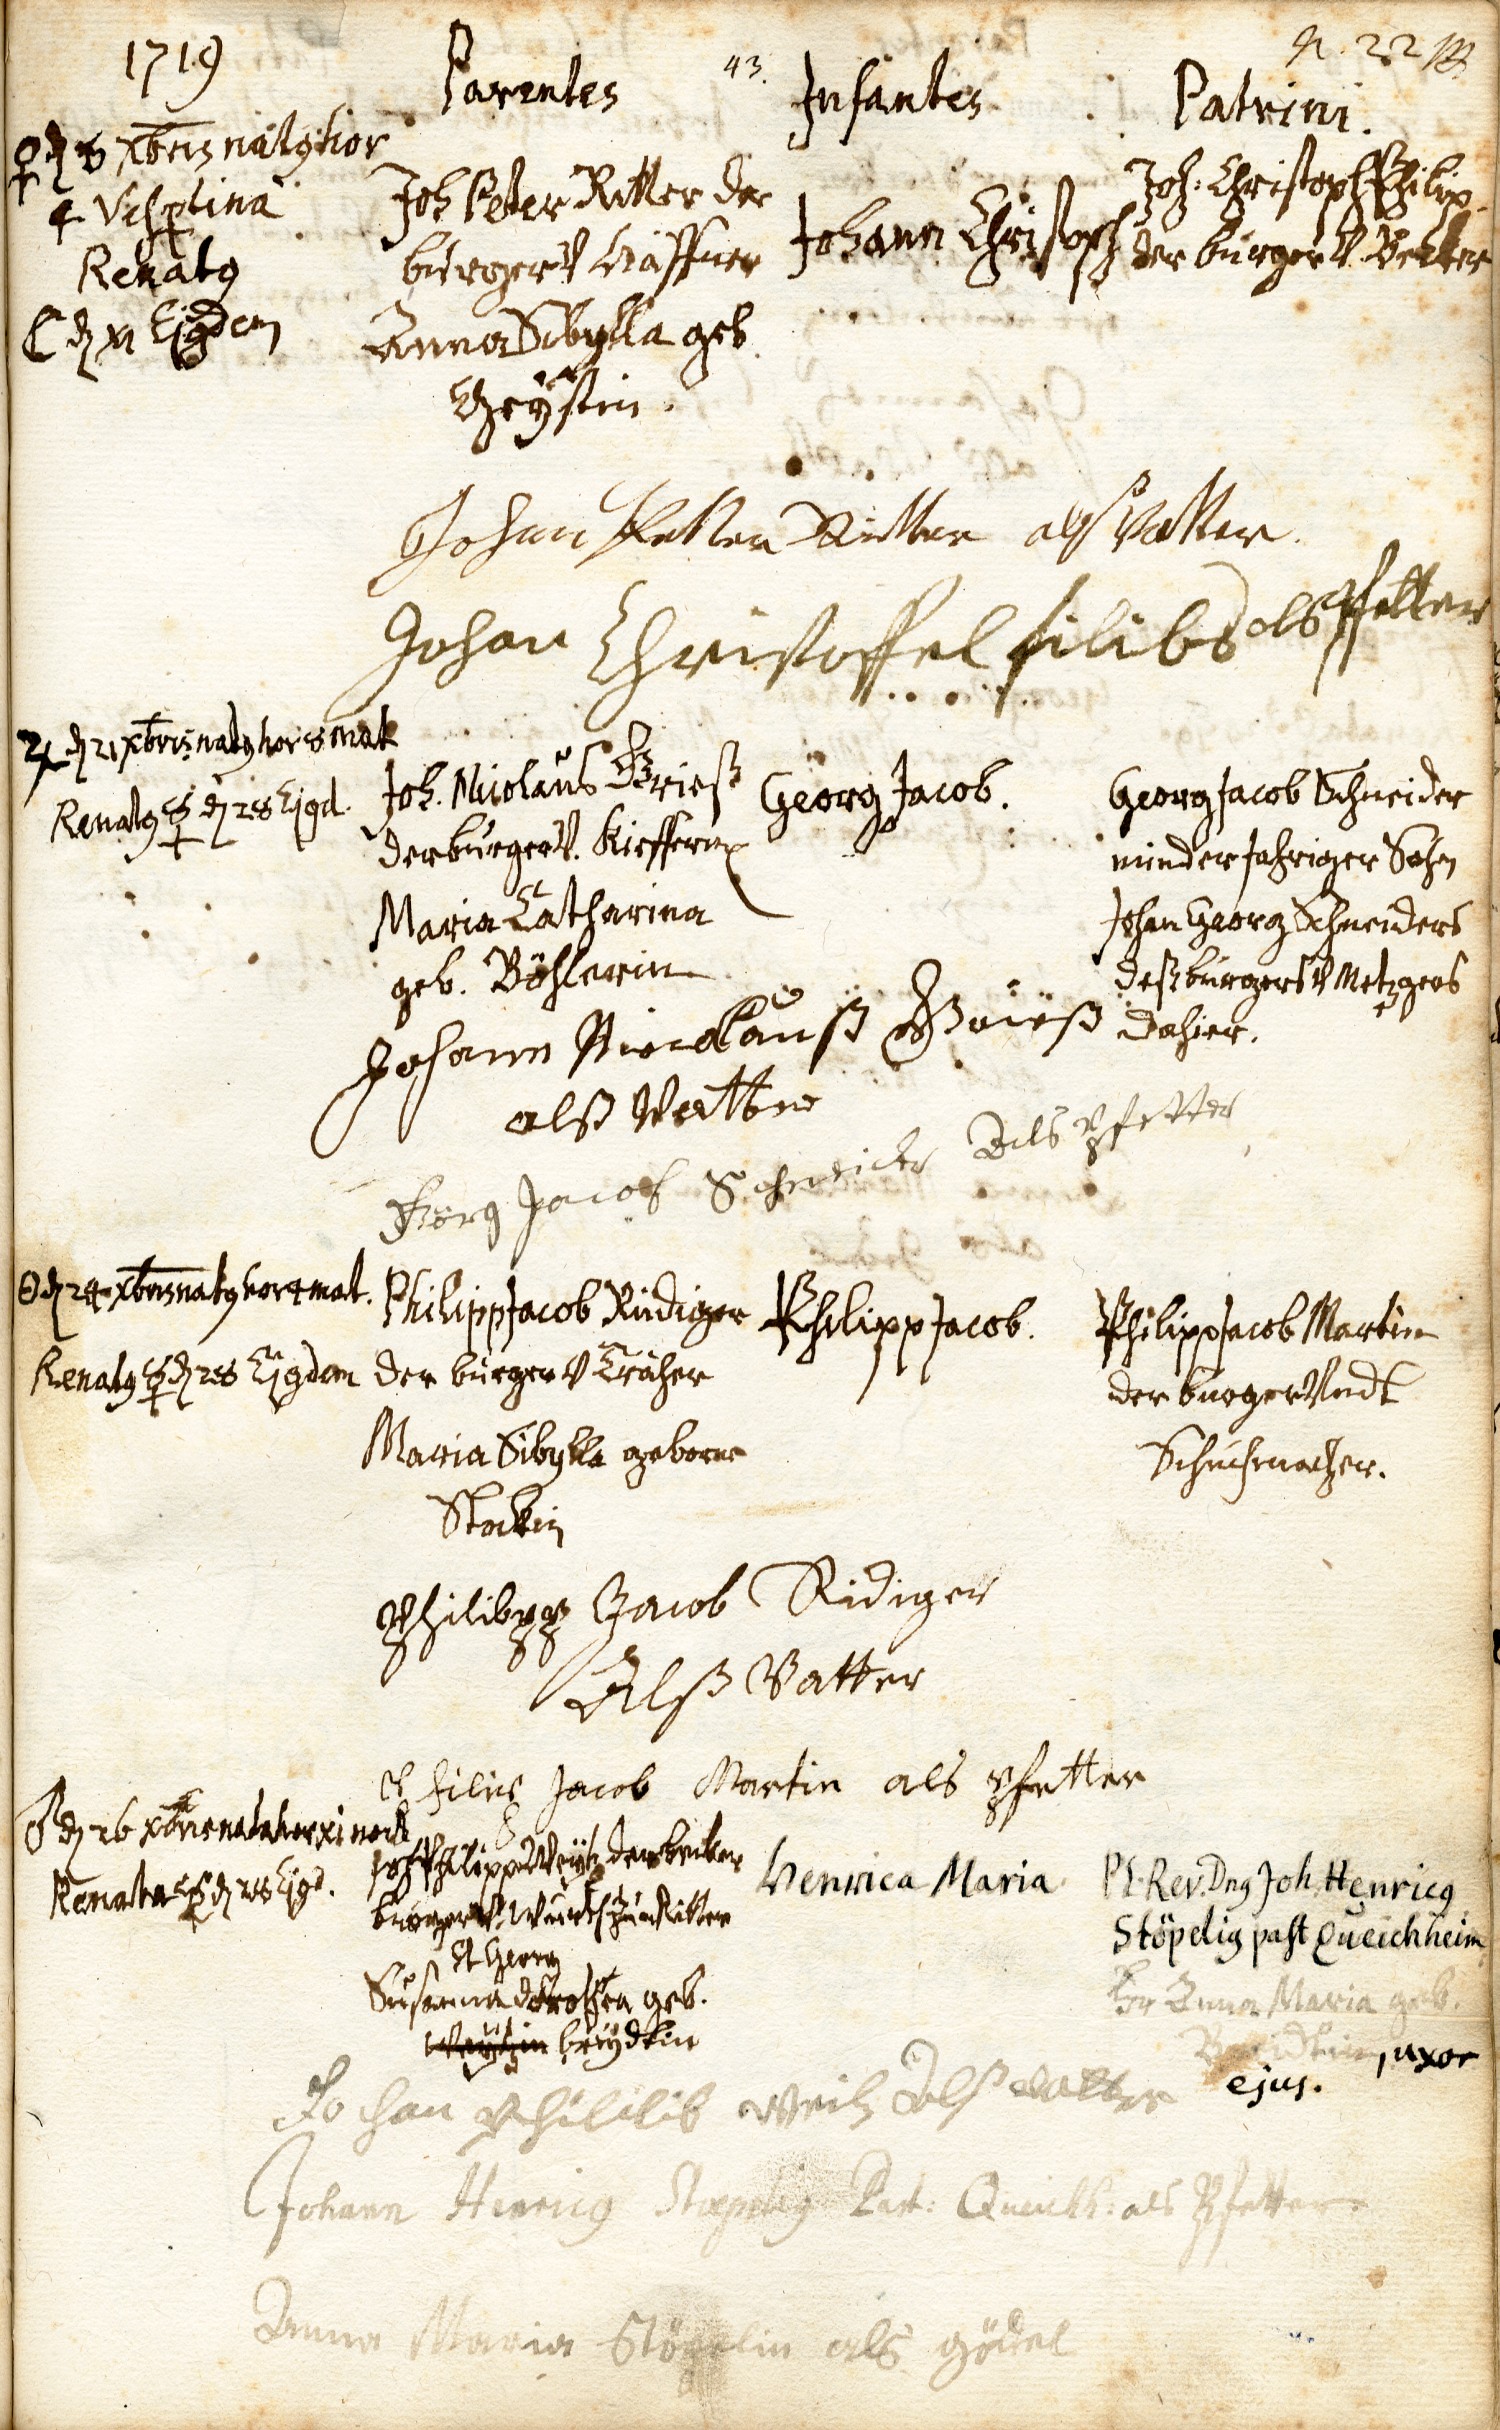 1719 Parentes 43. Infantes Patrini. 22
♀ d 8 xbris natus hor
4 Vespertina
Renatus
☾ d XI Ejusdem
Joh Peter Ritter der
burger V
Anna Sibylla geb
Johann Christoph
Joh: Christoph Philip
der burger V. Becker
Johan Petter Ritter alß Vatter.
Johan Christoffel filibs als Pfetter
♃ d 21 xbris natus hor 8 mat
Renatus d 28 Ejusd.
Joh. Nicolaus Grieß
der burger V. Kieffer
Maria Catharina
geb. Böhlerin
Georg Jacob.
Georg Jacob Schneider
minder jahriger Sohn
Johan Georg Schneiders
deß burgers V Metzgers
dahier.
Johann Nicolauß Grieß
alß Vatter
Georg Jacob Schneider Als Pfetter
☉ d 24 xbris natus hor 4 mat.
Renatus d 28 Ejusdem
Philipp Jacob Rüdiger
der burger V Träher
Maria Sibylla geborne
Stockin
Philipp Jacob.
Philipp Jacob Martin
der burger Undt
Schuhmacher.
Philibpp Jacob Ridiger
Alß Vatter
filip Jacob Martin als Pfetter
♂ d 26 xbris nata hor XI noct
Renata d 28 Ejusd.
Joh Philipp Weytz der becker
burger V. Wurth zum Ritter
St Georg
Susanna dorothea geb.
breydtin
Henrica Maria
Pl. Rev. Dnus Joh. Henricus
Stöpelius past Queichheim
Anna Maria geb.
uxor
ejus.
Johan Philib Weitz Alß Vatter
Johann Henricus Stoepelius Past: Queichh: als Pfetter
Anna Maria Stöpelin als gödel